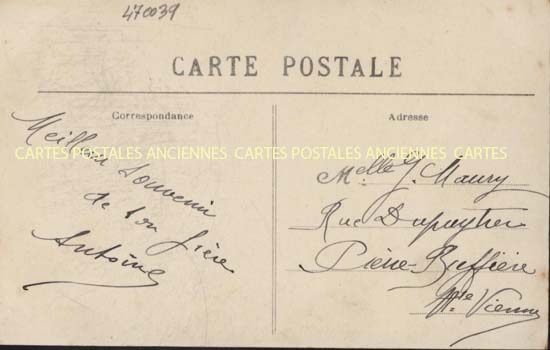 47cc39
CARTE POSTALE
Correspondance
Meilleur souvenir
de ton frère
Antoine
Adresse
Melle J. Maury
Rue Dupuytren
Pierre-Buffière
Hte Vienne
CARTES POSTALES ANCIENNES CARTES POSTALES ANCIENNES CARTES